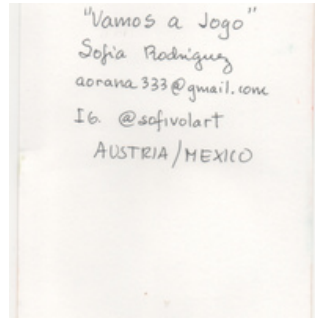 "Vamos a Jogo"
Sofia Rodriguez
aorana333@gmail.com
IG. @sofivolart
AUSTRIA/MEXICO